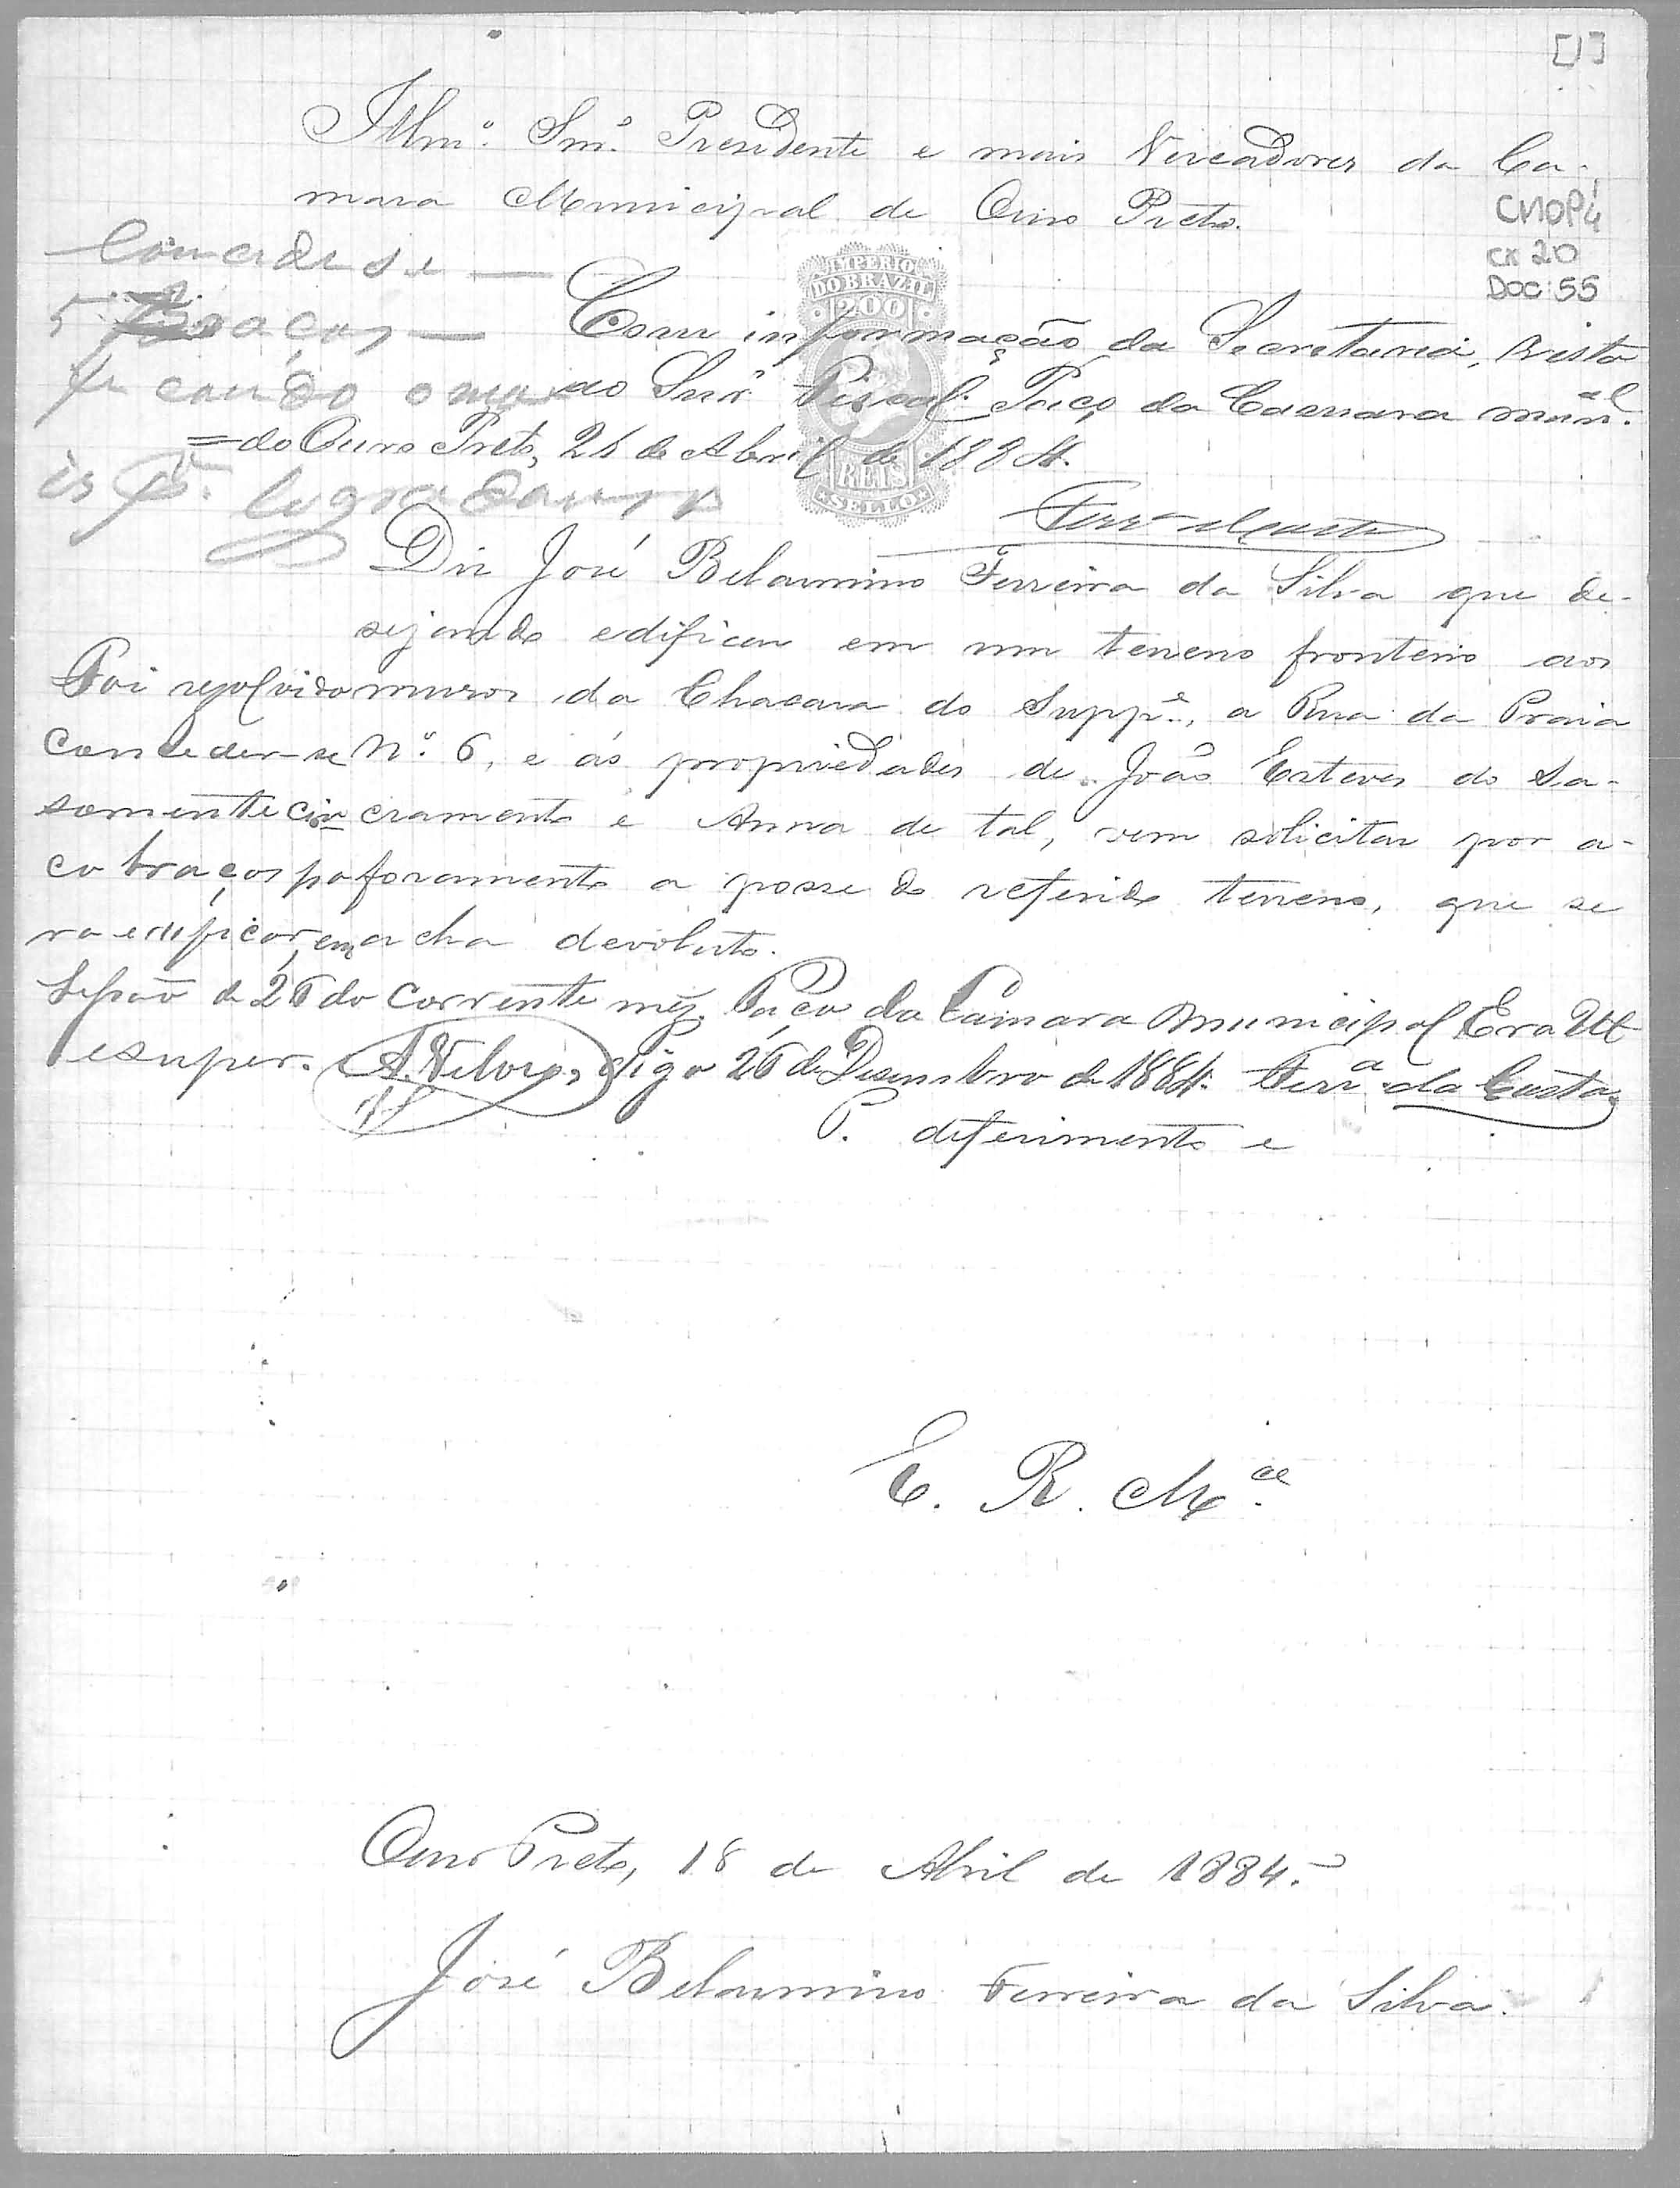 [1]
Illmº. Snr. Presidente e mais Vereadores da Ca-
mara Municipal de Ouro Preto.
CMOP
cx 20
DOC: 55
Concede se —
5 braços —
ficando o mar
IMPERIO
DO BRAZIL
200
REIS
SELLO
Com informação da Secretaria, vista
ao Snr Fiscal. Paço da Camara munal.
do Ouro Preto, 21 de Abril de 1884.
Ferrª da Costa
Diz José Belarmino Ferreira da Silva que de-
sejando edificar em um terreno fronteiro aos
muros da Chacara do Suppe., a Rua da Praia
Nº. 6, e ás propriedades de João Esteves do Sa-
cramento e Anna de tal, vem solicitar por a-
foramento a posse do referido terreno, que se
acha devoluto.
Foi resolvido
conceder-se
somente cin
co braços pa
ra edificar, em
Sessão de 26 do corrente mez. Paço da Camara Municipal Era Ut
esuper. A. Velozo, digo 26 de Desembro de 1884. Ferrª da Costa
P. deferimento e
E. R. Mce.
Ouro Preto, 18 de Abril de 1884.
José Belarmino Ferreira da Silva.